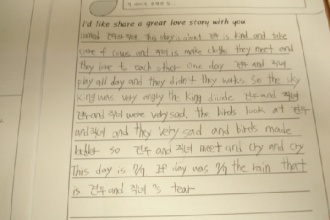 I'd like share a great love story with you
called 견우와 직녀. This story is about 견우 is kind and take
care of cows and 직녀 is make cloths they meet and
they love to each other One day 견우 and 직녀
play all day and they didn't they works. So the sky
king was very angry the king divide 견우 and 직녀
견우 and 직녀 were very sad. the birds look at 견우
and 직녀 and they very sad and birds made
so 견우 and 직녀 meet and cry and cry
This day is 7/7 day was 7/7 the rain that
is 견우 and 직녀 's tear